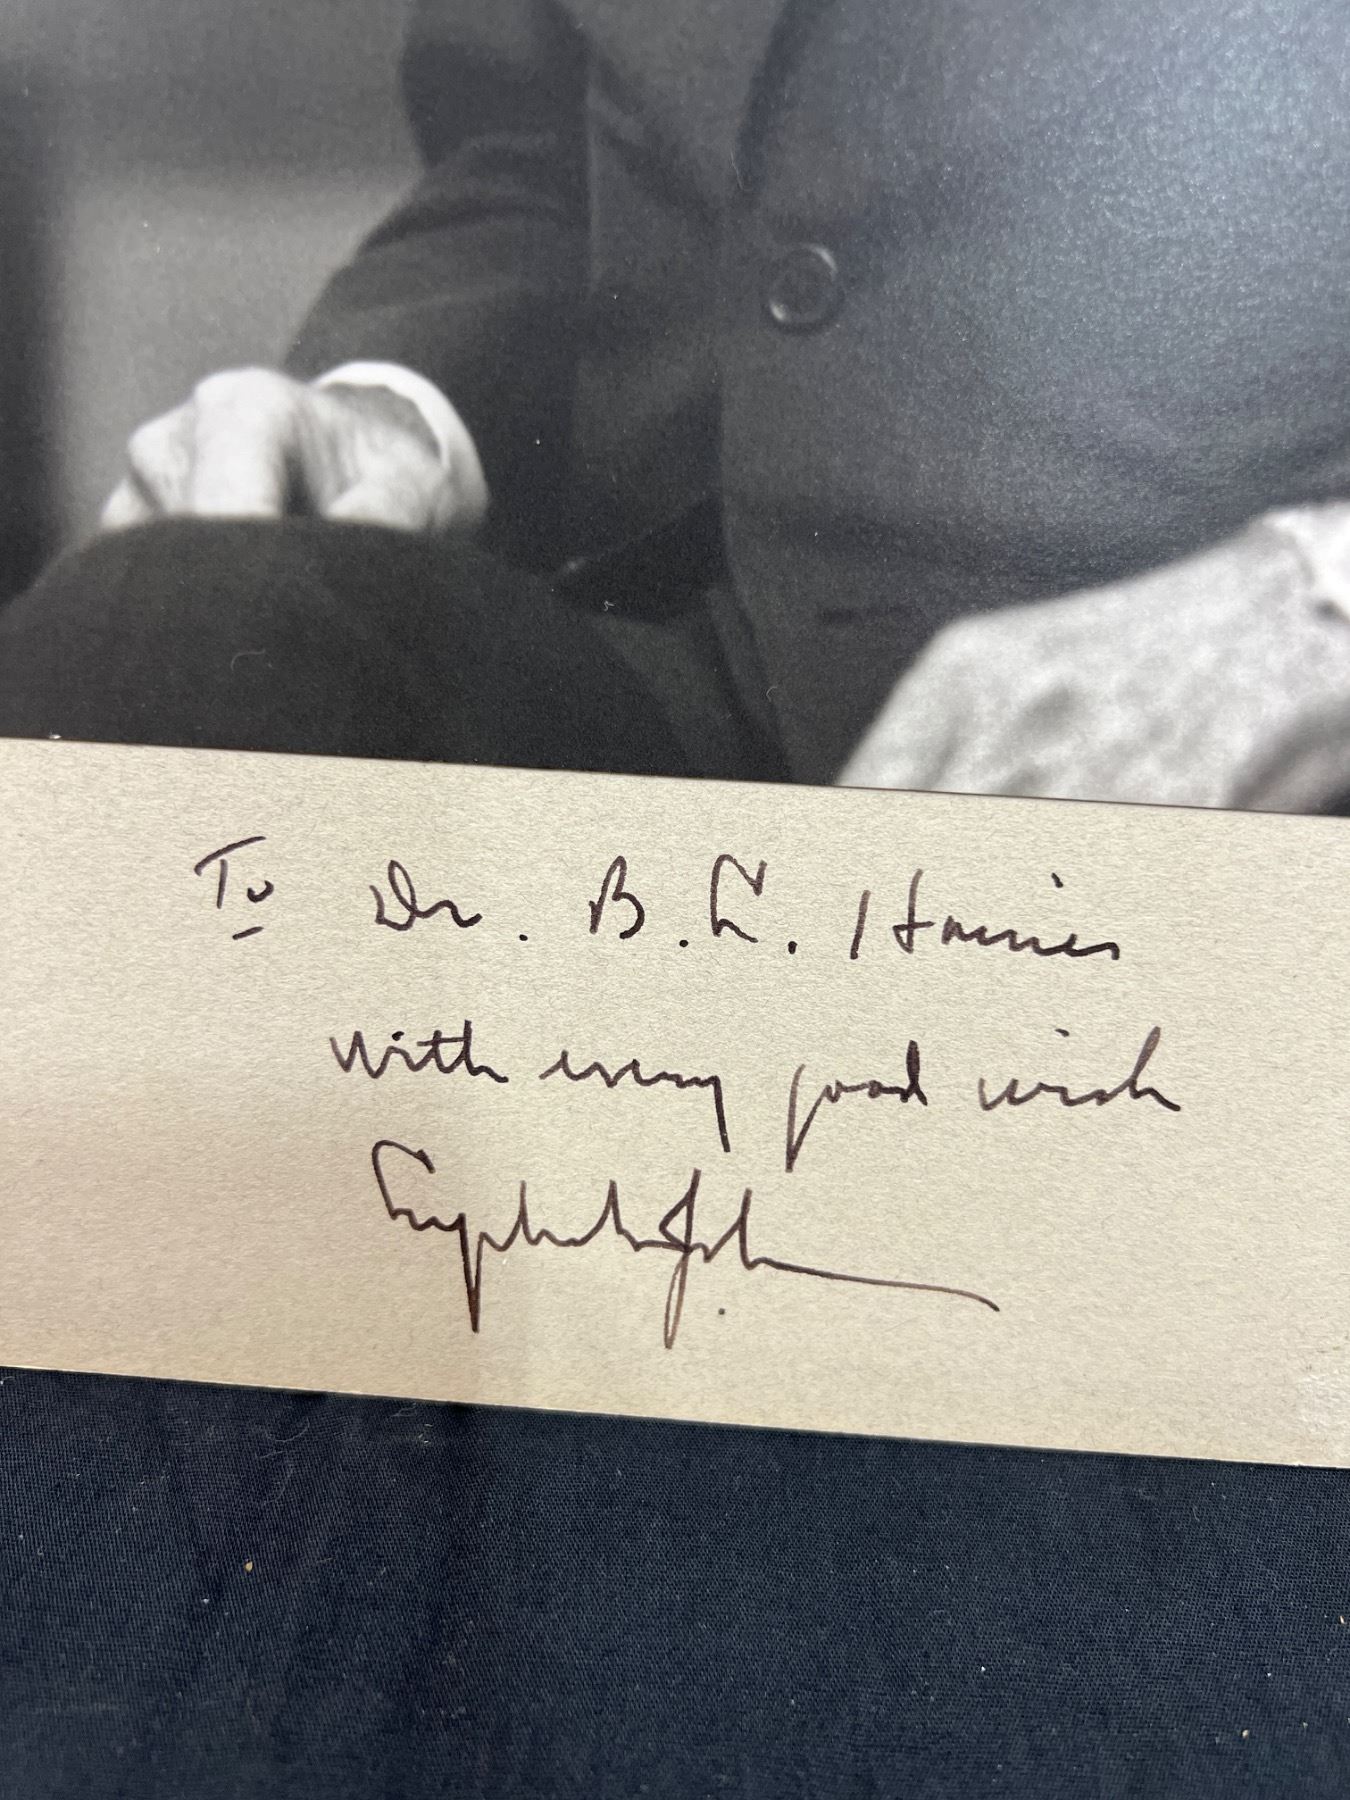 To Dr. B. L. Haines
with every good wish
Lyndon B. Johnson